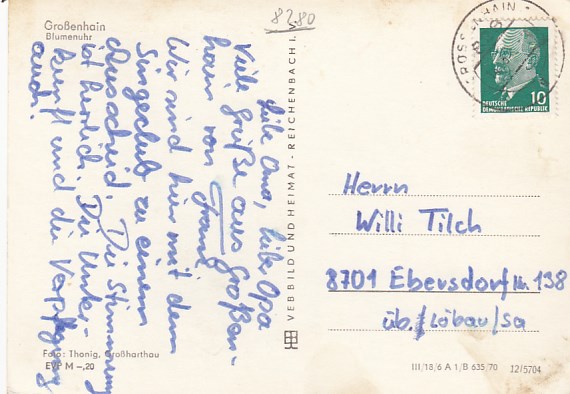 8280
Großenhain
Blumenuhr
Liebe Oma, lieber Opa
Viele Grüße aus Großen-
hain von Frank
Wir sind hier mit dem
Singeclub zu einem
Ausscheid. Die Stimmung
ist herrlich. Die Unter-
kunft und die Verpflegung
auch!
Foto: Thonig, Großharthau
EVP M -,20
VEB BILD UND HEIMAT · REICHENBACH I.
GROSSENHAIN
DEUTSCHE
DEMOKRATISCHE REPUBLIK
10
Herrn
Willi Tilch
8701 Ebersdorf Nr. 138
üb./Löbau/Sa
III/18/6 A 1/B 635/70 12/5704